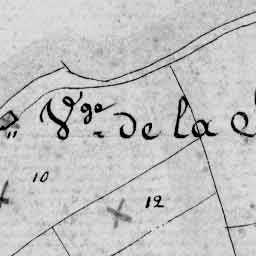 Vge de la
10
12